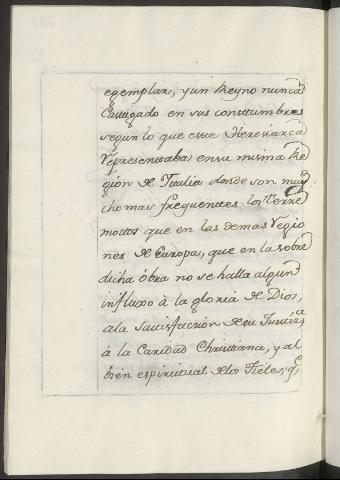 egemplar, y un Reyno nunca
Castigado en sus constumbres
segun lo que este Heresiarca
representaba en su misma Re
gion de Italia donde son mu
cho mas frequentes los terre
motos que en las demas regio
nes de Europa, que en la sobre
dicha óbra no se halla algun
influxo à la gloria de Dios,
a la satisfaccion de su Justiz.ª
á la Caridad Christiana, y al
bien espiritual de los Fieles, q.ᵉ